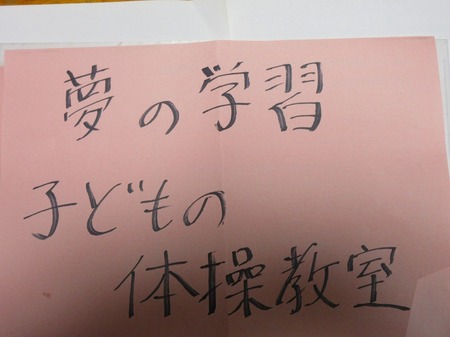 夢の学習
子どもの
体操教室